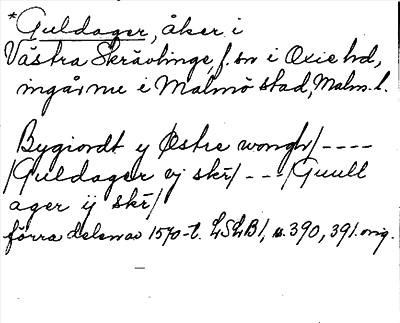 *Guldager, åker i
Västra Skrävlinge, f. sn i Oxie hd,
ingår nu i Malmö stad, Malm. l.
Bygiordt y Østre wongh/ ----
/Guldager ij skr/ ---/Guull
ager ij skr/
förra delen av 1570-t. LSLB1, s. 390, 391. orig.